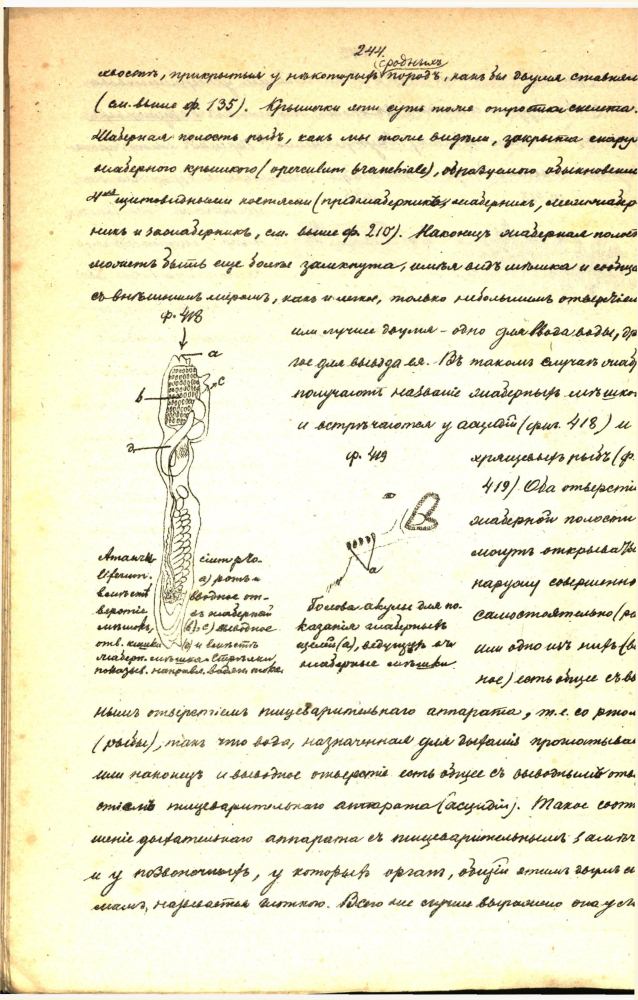 244.
сродныхъ
хвостъ, прикрытыя у нѣкоторыхъ породъ, какъ бы двумя ставнями
(см. выше ф. 135). Крышечки эти суть тоже отростки скелета.
Жаберная полость рыбъ, какъ мы тоже видѣли, закрыта снару
жаберного крышкого (operculum branchiale), образуемого обыкновенн
4мя щитовидными костями (преджаберникъ, жаберникъ, межжабер
никъ и зажаберникъ, см. выше ф. 210). Наконецъ жаберная полост
можетъ быть еще болѣе замкнута, имѣя видъ мѣшка и сообща
съ внѣшнимъ миромъ, какъ и легкое, только небольшимъ отверстіем
ф. 418
или лучше двумя - одно для ввода воды, др
гое для вывода ея. Въ такомъ случаѣ жаб
получаютъ названіе жаберныхъ мѣшко
и встрѣчаются у асцидій (фиг. 418) и
a
b
c
ф. 419
хрящевыхъ рыбъ (ф.
419) Оба отверсті
жаберной полости
могутъ открывать
наружу совершенно
самостоятельно (ро
или одно изъ нихъ (в
ное) есть общее съ в
a) ротъ
вводное от-
верстіе въ жаберной
мѣшокъ, (b), c) выводное
отв. кишки и вмѣстѣ
жаберн. мѣшка. Стрѣлки
показыв. направл. водян. тока.
a
Голова акулы для по-
казанія жаберныхъ
щелей (a), ведущихъ въ
жаберные мѣшки
нымъ отверстіемъ пищеварительнаго аппарата, т.е. со ртом
(рыбы), такъ что вода, назначенная для дыханія проглатывае
или наконецъ и выводное отверстіе есть общее съ выводнымъ отве
стіемъ пищеварительнаго аппарата (асцидіи). Такое соотн
шеніе дыхательнаго аппарата съ пищеварительнымъ замѣч
и у позвоночныхъ, у которыхъ органъ, общій этимъ двумъ си
мамъ, называется глоткою. Всего же лучше выражено она у